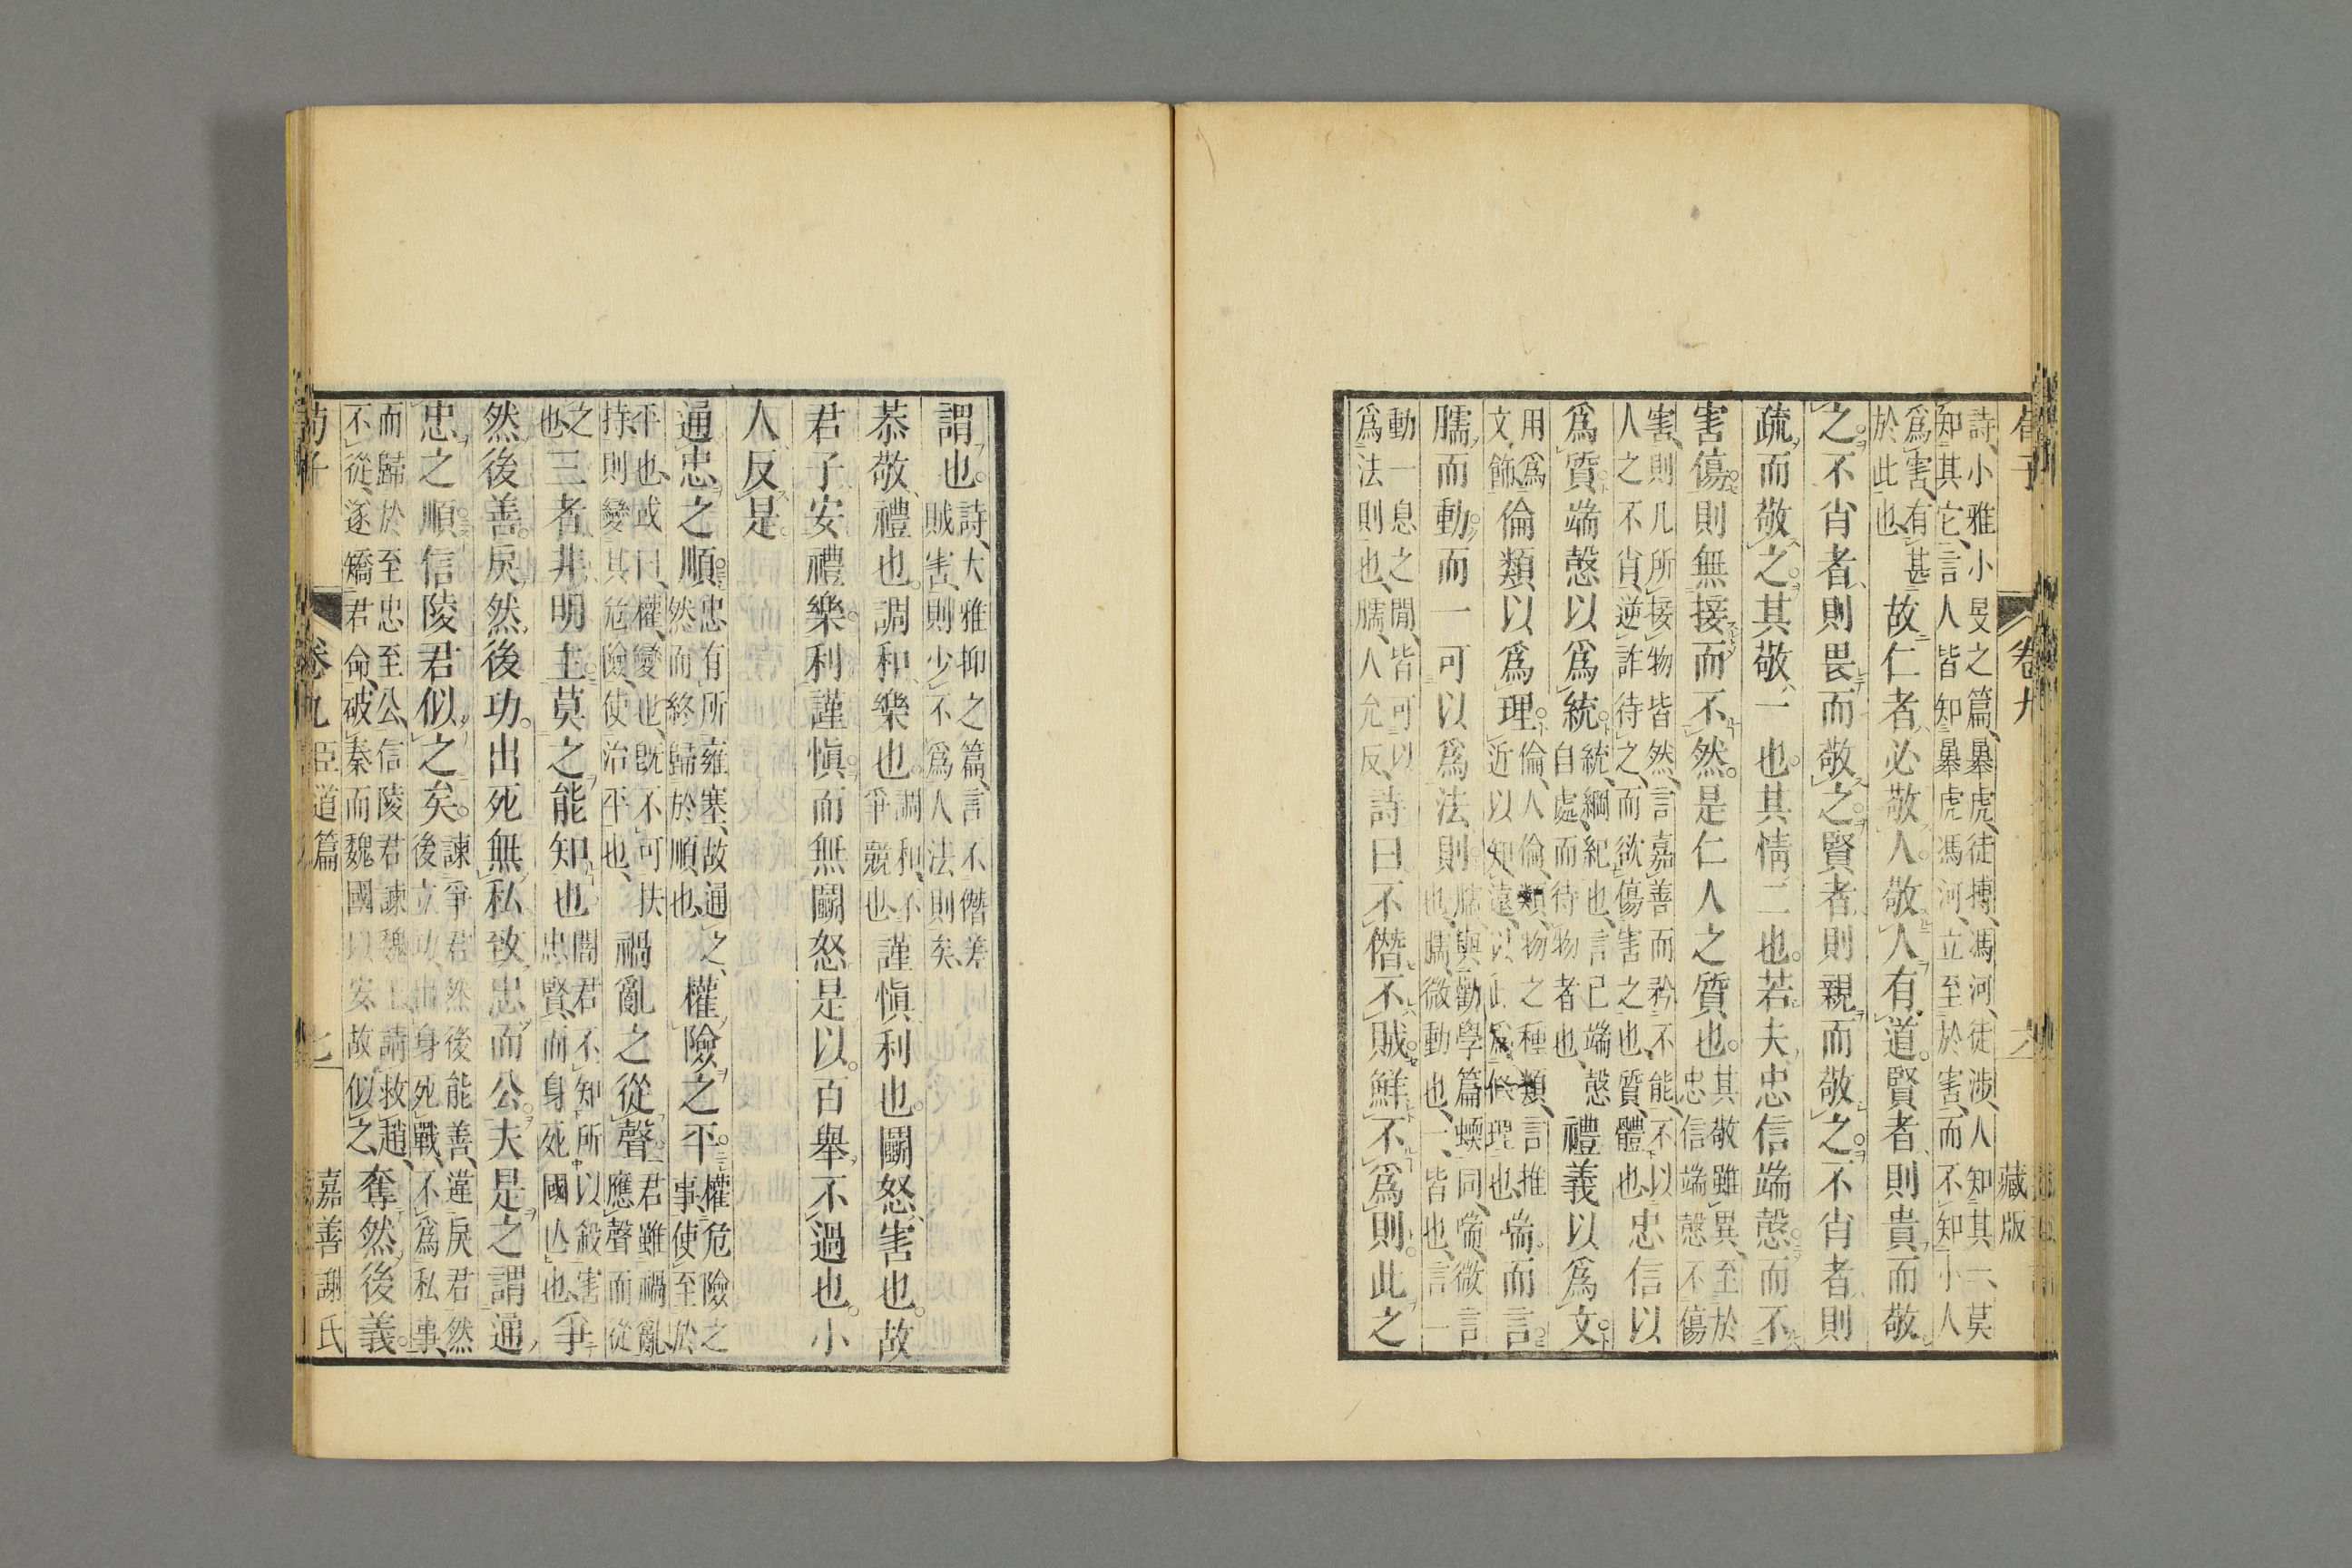 荀子 卷九 六 藏版
詩、小雅小旻之篇、暴虎、徒搏、馮河、徒涉、人知其一、莫
知其它、言人皆知暴虎馮河、立至於害、而不知小人
爲害、有甚
於此也
故仁者必敬人。敬人有道。賢者則貴而敬
之。不肖者則畏而敬之。賢者則親而敬之。不肖者則
疏而敬之。其敬一也。其情二也。若夫忠信端愨而不
害傷則無接而不然。是仁人之質也。
其敬雖異、至於
忠信端愨不傷
害、則凡所接物皆然、言嘉善而矜不能、不以
人之不肖、逆詐待之、而欲傷害之也、質、體也
忠信以
爲質端愨以爲統
統、綱紀也、言已端愨
自處而待物者也、
禮義以爲文
用爲
文飾
倫類以爲理。
倫、人倫、類、物之種類、言推
近以知遠、以此爲條理也、
喘而言。
臑而動而一可以爲法則。
臑與勸學篇蝡同、喘、微言
也、臑、微動也、一、皆也、言一
動一息之閒、皆可以
爲法則也、臑、人允反、
詩曰不僭不賊鮮不爲則。此之
謂也。
詩、大雅抑之篇、言不僭差
賊害、則少不爲人法則矣、
恭敬禮也。調和樂也。
調和、不
爭競也、
謹愼利也。鬭怒害也。故
君子安禮樂利謹愼而無鬭怒是以百舉不過也。小
人反是。
通忠之順
忠有所雍塞、故通之、
然而終歸於順也、
權險之平。
權危險之
事、使至於
平也、或曰、權、變也、旣不可扶
持、則變其危險、使治平也、
禍亂之從聲
君雖禍亂、
應聲而從
之
也、
三者非明主莫之能知也。
闇君不知所以殺害
忠賢、而身死國亡也、
爭
然後善戾然後功。出死無私致忠而公夫是之謂通
忠之順信陵君似之矣。
諫爭君然後能善、違戾君然
後立功、出身死戰、不爲私事、
而歸於至忠至公、信陵君諫魏王請救趙、
不從、遂矯君命、破秦而魏國以安、故似之
奪然後義。
荀子 卷九 臣道篇 七 嘉善謝氏